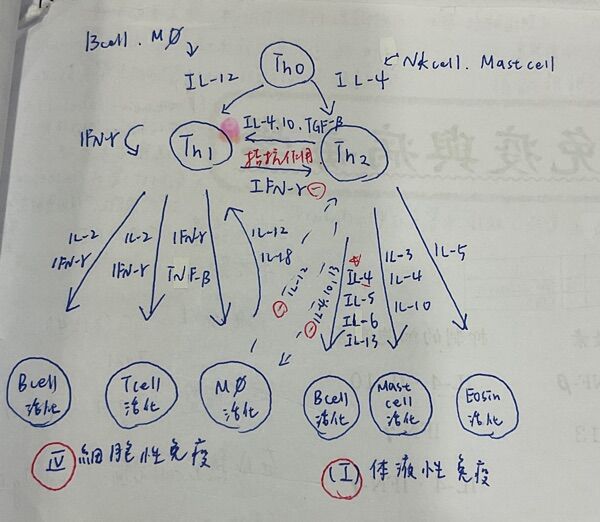 Bcell. MØ
Th0
NKcell. Mast cell
IL-12
IL-4
IL-4.10.TGF-β
IFN-γ
Th1
拮抗作用
Th2
IFN-γ
IL-2
IFN-γ
IL-2
IFN-γ
IFNγ
TNF-β
IL-12
IL-18
IL-12
IL-4.10.13
IL-4
IL-5
IL-6
IL-13
IL-3
IL-4
IL-10
IL-5
Bcell
活化
Tcell
活化
MØ
活化
Bcell
活化
Mast
cell
活化
Eosin
活化
Ⅳ 細胞性免疫
(I) 体液性免疫
免疫與